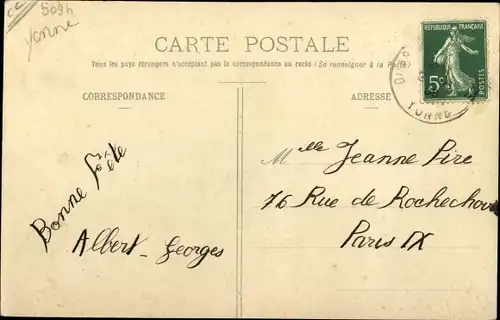 Yonne
CARTE POSTALE
Tous les pays étrangers n'acceptant pas la correspondance au recto (Se renseigner à la Poste)
CORRESPONDANCE
ADRESSE
RÉPUBLIQUE FRANÇAISE
5c
POSTES
YONNE
Bonne fête
Albert-Georges
Mlle Jeanne Pire
76 Rue de Rochechou
Paris IX